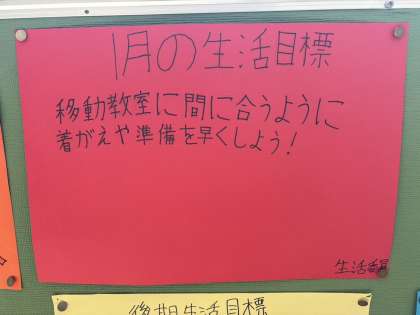 1月の生活目標
移動教室に間に合うように
着がえや準備を早くしよう!
生活委員
後期生活目標